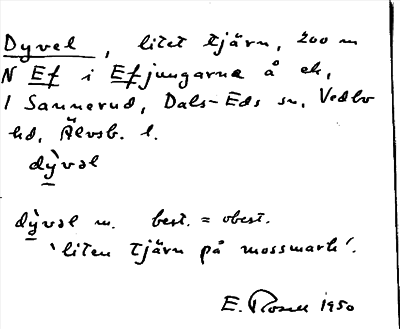 Dyvel, litet tjärn, 200 m
N Ef i Efjungarna å ek,
1 Sannerud, Dals-Eds sn, Vedbo
hd, Älvsb. l.
dỳvəl
dỳvəl m. best. = obest.
'liten tjärn på mossmark'.
E. 1950